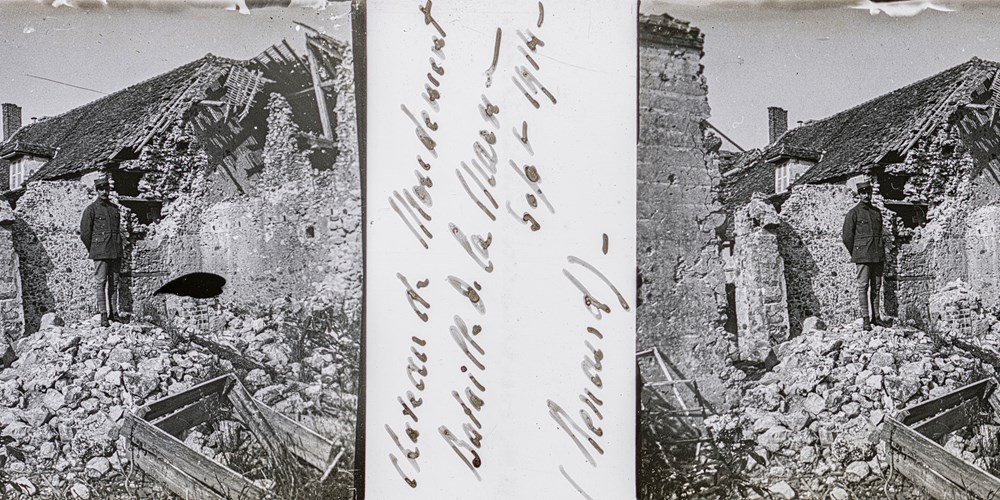 Chateau de Mondement
bataille de la Marne
Sept - 1914 -
(Renaud) -